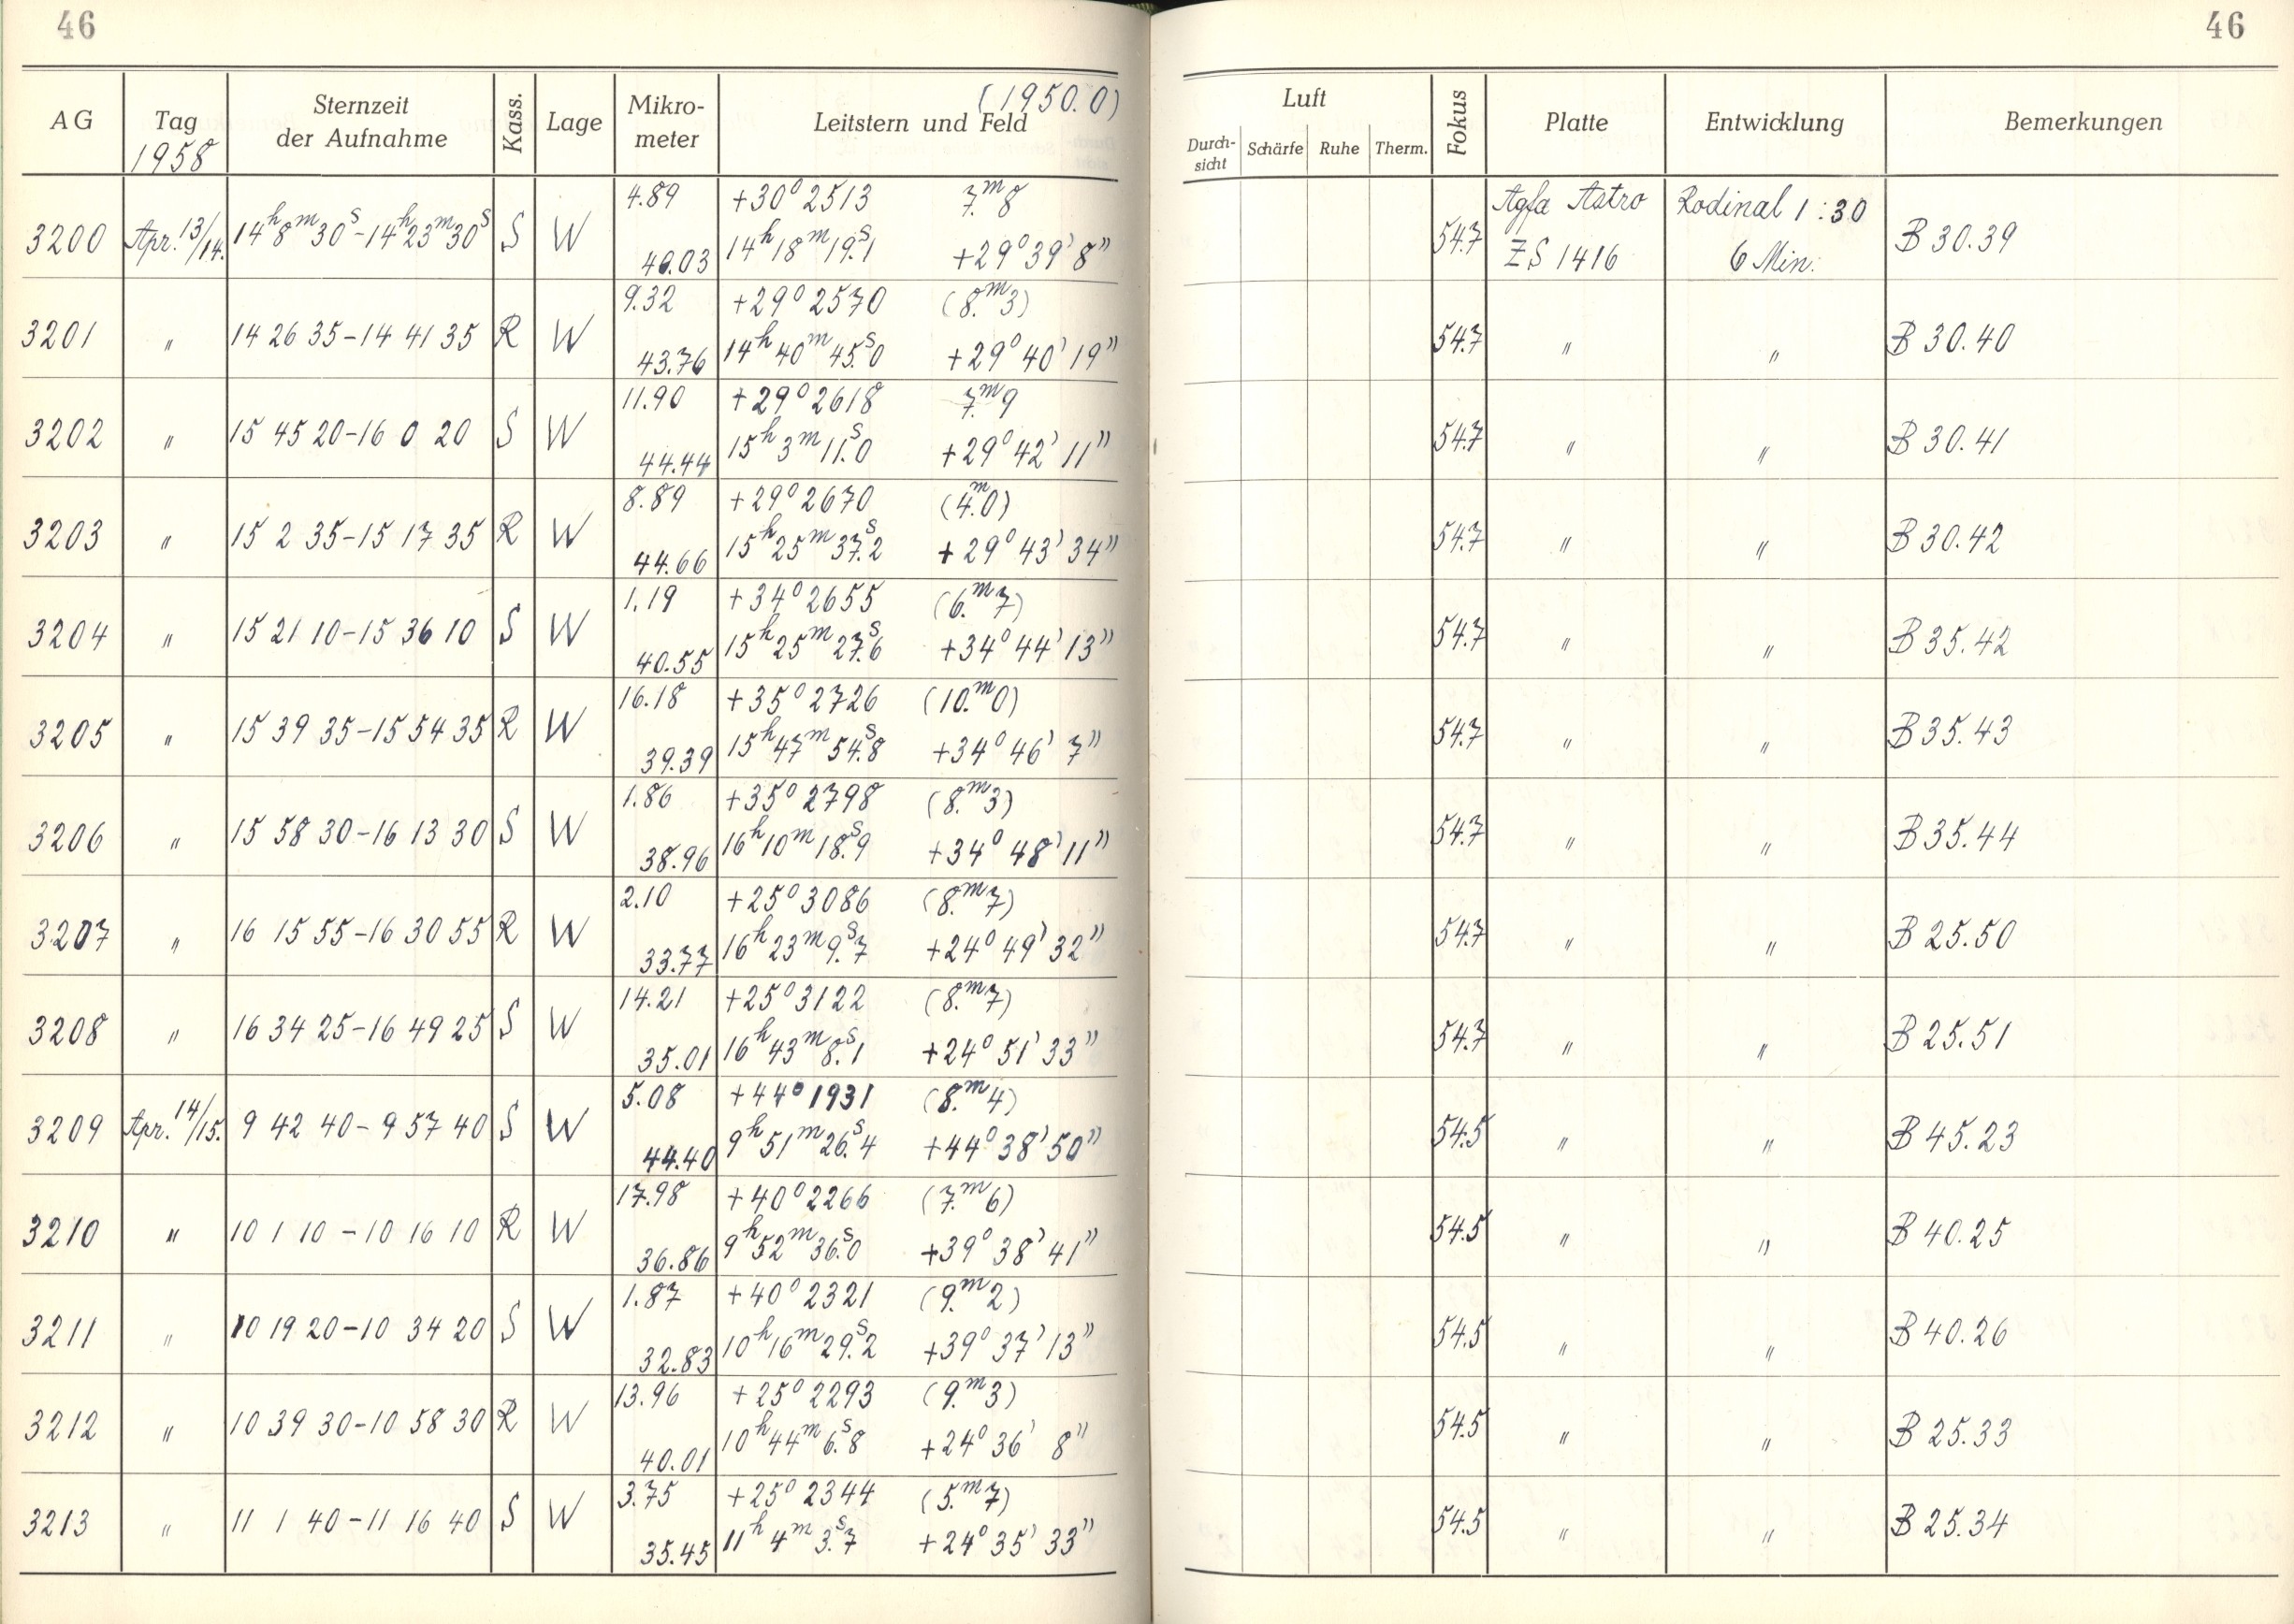 46
46
AG Tag Sternzeit der Aufnahme Kass. Lage Mikro-meter Leitstern und Feld (1950.0) Luft Durch-sicht Schärfe Ruhe Therm. Fokus Platte Entwicklung Bemerkungen
1958
4.89 +30° 2513 7.ᵐ8 Agfa Astro Rodinal 1:30
3200 Apr. 13/14. 14ʰ8ᵐ30ˢ-14ʰ23ᵐ30ˢ S W 54.7 B 30.39
40.03 14ʰ18ᵐ19ˢ.1 +29° 39' 8" ZS 1416 6 Min.
9.32 +29° 2570 (8.ᵐ3)
3201 " 14 26 35-14 41 35 R W 54.7 " " B 30.40
43.76 14ʰ40ᵐ45ˢ.0 +29° 40' 19"
11.90 +29° 2618 7.ᵐ9
3202 " 15 45 20-16 0 20 S W 54.7 " " B 30.41
44.44 15ʰ3ᵐ11ˢ.0 +29° 42' 11"
8.89 +29° 2670 (4.ᵐ0)
3203 " 15 2 35-15 17 35 R W 54.7 " " B 30.42
44.66 15ʰ25ᵐ37ˢ.2 +29° 43' 34"
1.19 +34° 2655 (6.ᵐ7)
3204 " 15 21 10-15 36 10 S W 54.7 " " B 35.42
40.55 15ʰ25ᵐ27ˢ.6 +34° 44' 13"
16.18 +35° 2726 (10.ᵐ0)
3205 " 15 39 35-15 54 35 R W 54.7 " " B 35.43
39.39 15ʰ47ᵐ54ˢ.8 +34° 46' 7"
1.86 +35° 2798 (8.ᵐ3)
3206 " 15 58 30-16 13 30 S W 54.7 " " B 35.44
38.96 16ʰ10ᵐ18ˢ.9 +34° 48' 11"
2.10 +25° 3086 (8.ᵐ7)
3207 " 16 15 55-16 30 55 R W 54.7 " " B 25.50
33.77 16ʰ23ᵐ9ˢ.7 +24° 49' 32"
14.21 +25° 3122 (8.ᵐ7)
3208 " 16 34 25-16 49 25 S W 54.7 " " B 25.51
35.01 16ʰ43ᵐ8ˢ.1 +24° 51' 33"
5.08 +44° 1931 (8.ᵐ4)
3209 Apr. 14/15. 9 42 40-9 57 40 S W 54.5 " " B 45.23
44.40 9ʰ51ᵐ26ˢ.4 +44° 38' 50"
17.98 +40° 2266 (7.ᵐ6)
3210 " 10 1 10-10 16 10 R W 54.5 " " B 40.25
36.86 9ʰ52ᵐ36ˢ.0 +39° 38' 41"
1.87 +40° 2321 (9.ᵐ2)
3211 " 10 19 20-10 34 20 S W 54.5 " " B 40.26
32.83 10ʰ16ᵐ29ˢ.2 +39° 37' 13"
13.96 +25° 2293 (9.ᵐ3)
3212 " 10 39 30-10 58 30 R W 54.5 " " B 25.33
40.01 10ʰ44ᵐ6ˢ.8 +24° 36' 8"
3.75 +25° 2344 (5.ᵐ7)
3213 " 11 1 40-11 16 40 S W 54.5 " " B 25.34
35.45 11ʰ4ᵐ3ˢ.7 +24° 35' 33"